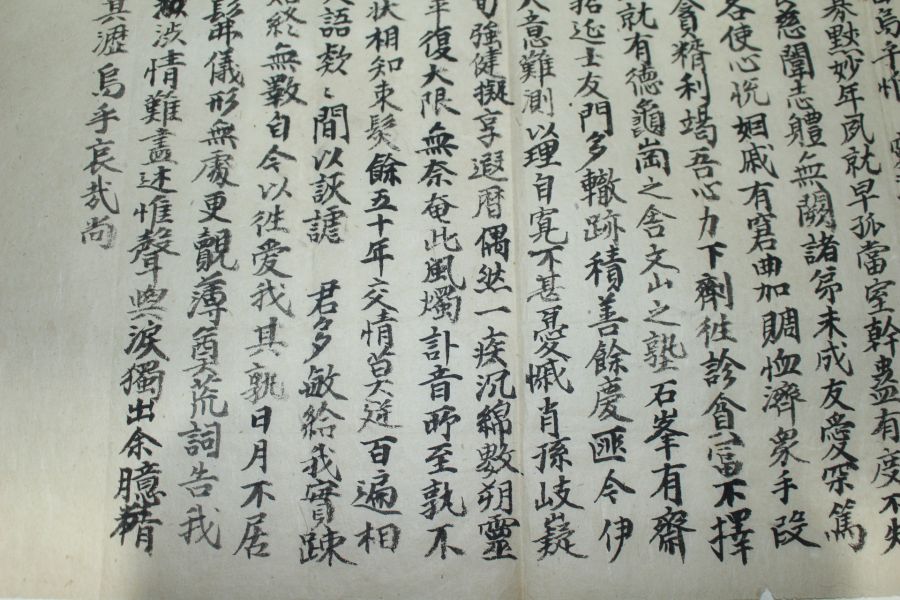 嗚乎惟
恭默妙年夙就早孤當室幹蠱有度不失
慈闈志體無闕諸弟末成友愛深篤
各使心悦姻戚有窘曲加賙恤濟衆手段
貪糈利竭吾心力下劑往診貧富不擇
就有德龜崗之舍文山之塾石峯有齋
招延士友門多轍跡積善餘慶匪今伊
天意難測以理自寬不甚憂慽肖孫岐嶷
旬強健擬享遐曆偶然一疾沉綿數朔靈
年復大限無奈奄此風燭訃音所至孰不
狀相知束髮餘五十年交情莫逆百遍相
笑語欵〻間以詼謔 君多敏給我實踈
始終無斁自今以徃愛我其孰日月不居
髣髴儀形無處更覿薄奠荒詞告我
澁情難盡述惟聲與淚獨出余臆精
其瀝烏乎哀哉尚